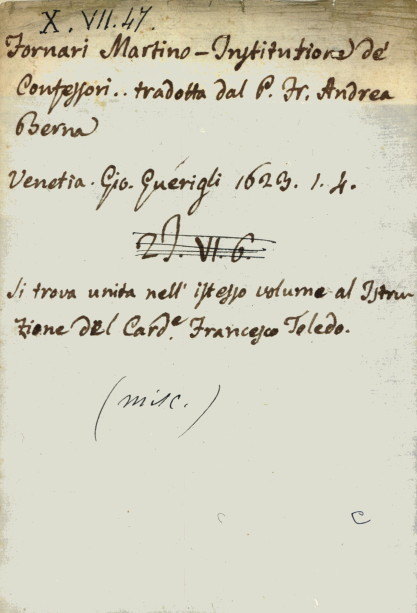 X. VII. 47.
Fornari Martino – Institutione de'
Confessori.. tradotta dal P. Fr. Andrea
Berna
Venetia. Gio. Guérigli 1623. 1. 4.
VI. 6.
Si trova unita nell' istesso volume al Istru-
zione del Card.e Francesco Toledo.
(misc.)
C